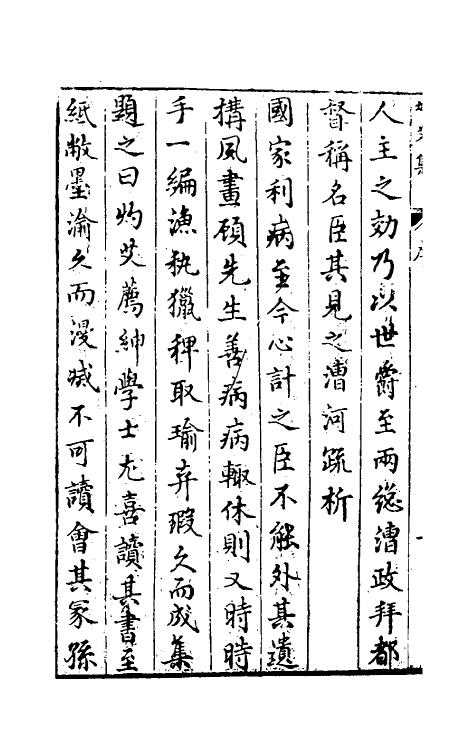 人主之効乃以世爵至兩總漕政拜都
督稱名臣其見之漕河疏析
國家利病至今心計之臣不能外其遺
搆風畫碩先生善病病輙休則又時時
手一編漁執獵稗取瑜弃瑕久而成集
題之曰灼艾薦紳學士尤喜讀其書至
紙敝墨渝久而漫烕不可讀會其冢孫